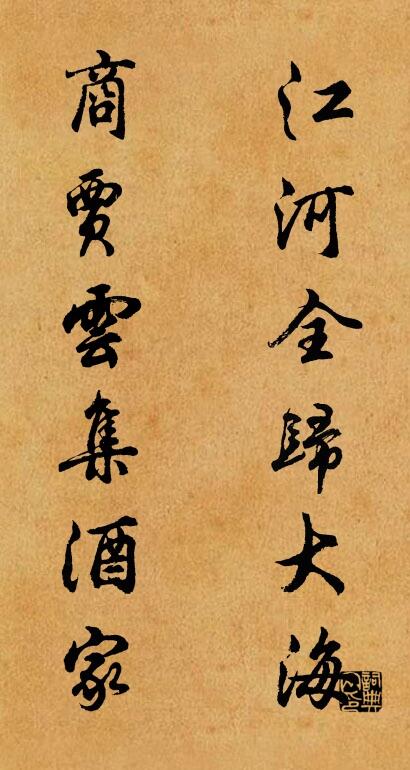 江河全歸大海
商賈雲集酒家